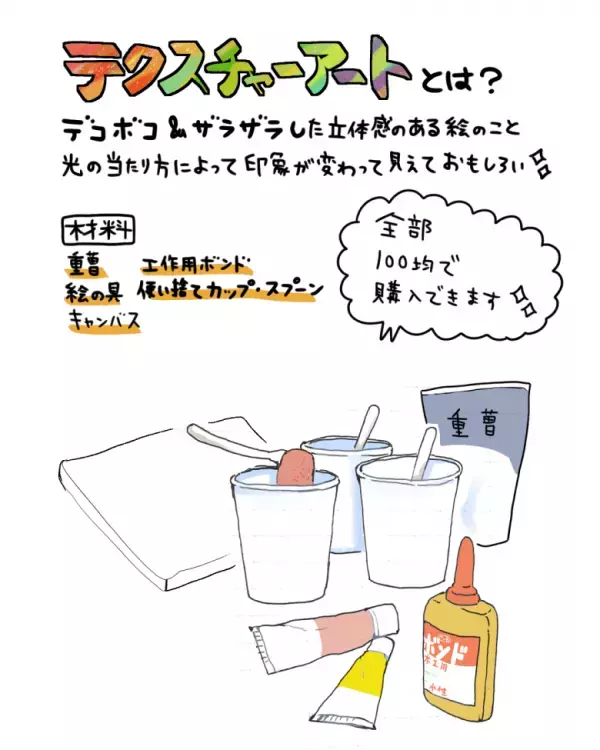 テクスチャーアートとは？
デコボコ&ザラザラした立体感のある絵のこと
光の当たり方によって印象が変わって見えておもしろい
材料
重曹 工作用ボンド
絵の具 使い捨てカップ・スプーン
キャンバス
全部
100均で
購入できます
重曹
ボンド
木工用
水性